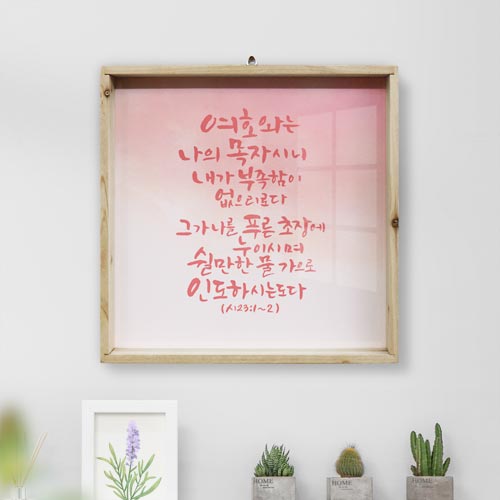 여호와는
나의 목자시니
내가 부족함이
없으리로다
그가 나를 푸른 초장에
누이시며
쉴만한 물 가으로
인도하시는도다
(시23:1~2)
HOME
HOME
HOME